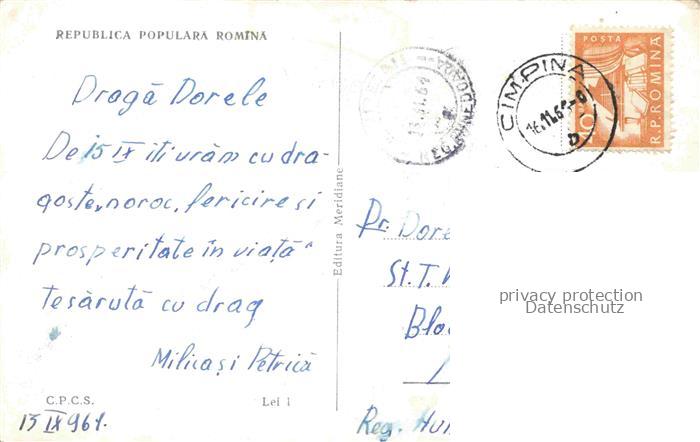 REPUBLICA POPULARĂ ROMÎNĂ
Dragă Dorele
De 15 IX iti urăm cu dra-
goste, noroc, fericire si
prosperitate în viață"
Te sărută cu drag
Milica si Petrică
C.P.C.S. Lei 1
15 IX 961.
Editura Meridiane
CIMPINA
POSTA
R.P. ROMINA
Dr. Dore
St. T.
Bloc
Reg. Hun
privacy protection
Datenschutz